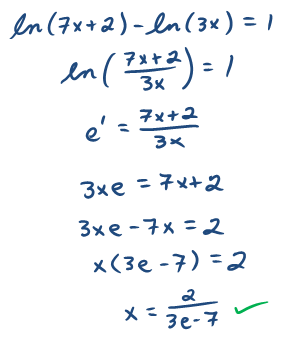 ln(7x+2)-ln(3x) = 1
ln((7x+2)/(3x)) = 1
e¹ = (7x+2)/(3x)
3xe = 7x+2
3xe-7x = 2
x(3e-7) = 2
x = 2/(3e-7) ✓